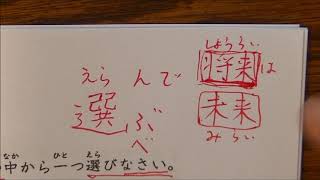 しょうらい
将来は
えらんで
選ぶ
べ
未来
みらい
なか ひと えら
中から一つ選びなさい。